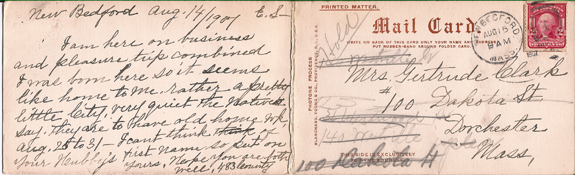 New Bedford Aug. 14/1901 E.S-
I am here on business
and pleasure trip combined
I was born here so it seems
like home to me. rather a pretty
little City, very quiet the natives
say, they are to have old home wk
Aug, 25 to 31- I cant think of
your Hubby's First name so put on
yours, Hope you are both
well, 483 County
PRINTED MATTER.
Mail Card.
WRITE ON BACK OF THIS CARD ONLY YOUR NAME AND
PUT RUBBER BAND AROUND FOLDED CARD.
Hold
BEDFORD
AUG 15
9 AM
MASS.
PHOTOTYPE PROCESS
Mrs. Gertrude Clark
#100 Dakota St.
Dorchester
Mass,
100 Dakota St